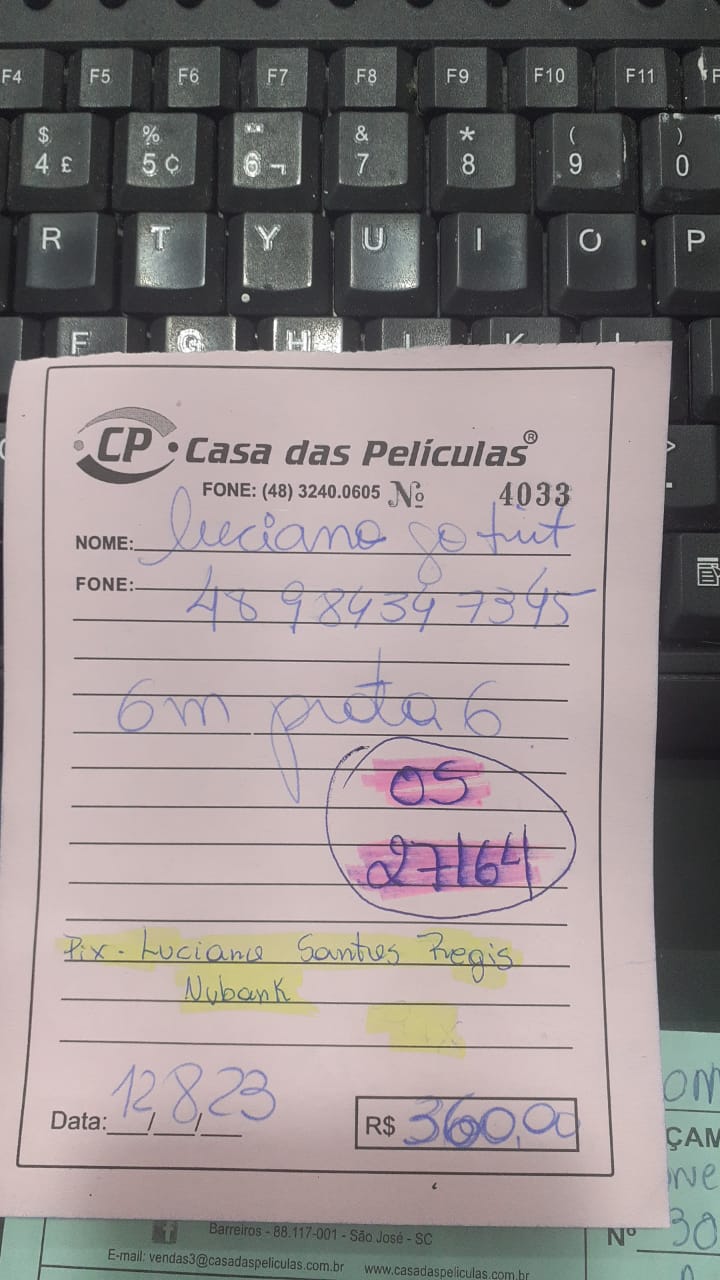 F4 F5 F6 F7 F8 F9 F10 F11 F
$ % & * ( )
4 £ 5 ¢ 6 ¬ 7 8 9 0
R T Y U I O P
F G H
CP Casa das Películas®
FONE: (48) 3240.0605 Nº 4033
NOME: Luciano
FONE:
48 984347345
6m preta 6
OS
27164
Pix - Luciano Santos Regis
Nubank
Data: 12/8/23
R$ 360,00
OM
ÇAM
Nº 30
Barreiros - 88.117-001 - São José - SC
E-mail: vendas3@casadaspeliculas.com.br www.casadaspeliculas.com.br